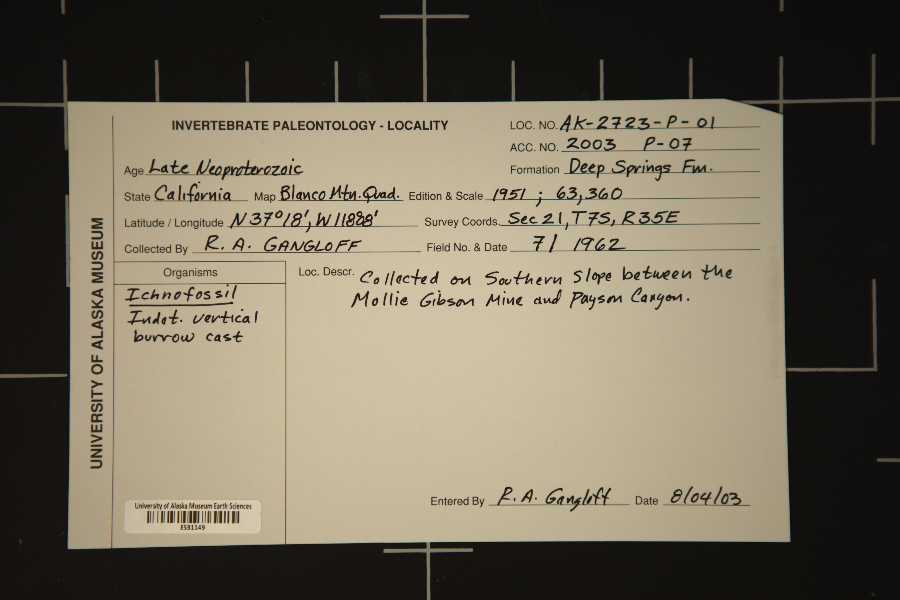 INVERTEBRATE PALEONTOLOGY - LOCALITY
LOC. NO. AK-2723-P-01
ACC. NO. 2003 P-07
Age Late Neoproterozoic
Formation Deep Springs Fm.
State California Map Blanco Mtn. Quad. Edition & Scale 1951 ; 63,360
Latitude / Longitude N 37° 18', W 118°8' Survey Coords. Sec 21, T7S, R35E
Collected By R. A. GANGLOFF Field No. & Date 7/ 1962
Organisms
Ichnofossil
Indet. vertical
burrow cast
Loc. Descr. Collected on Southern Slope between the
Mollie Gibson Mine and Payson Canyon.
Entered By R. A. Gangloff Date 8/04/03
University of Alaska Museum Earth Sciences
ES31149
UNIVERSITY OF ALASKA MUSEUM